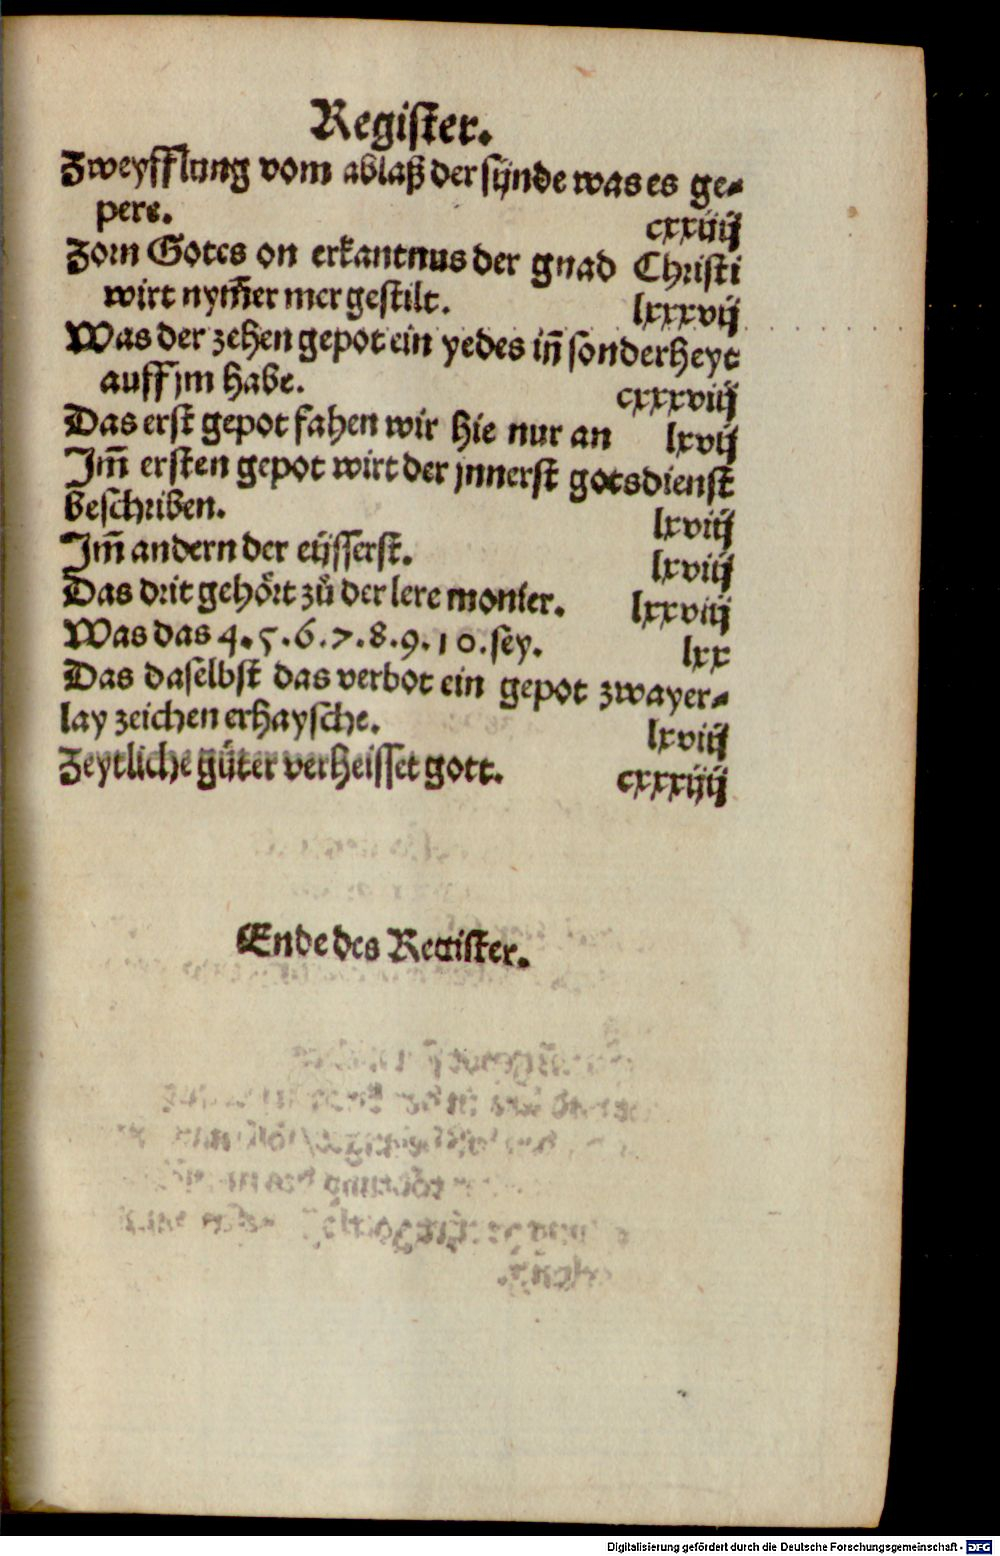 Register.
Zweyfflung vom ablaß der sünde was es ge-
pere. cxxiiij
Zorn Gotes on erkantnus der gnad Christi
wirt nym̃er mer gestilt. lxxxvij
Was der zehen gepot ein yedes iñ sonderheyt
auff jm habe. cxxxviij
Das erst gepot fahen wir hie nur an lxvij
Jm̃ ersten gepot wirt der jnnerst gotsdienst
beschriben. lxviij
Jm̃ andern der eüsserst. lxviij
Das drit gehört zů der lere monier. lxxviij
Was das 4.5.6.7.8.9.10.sey. lxx
Das daselbst das verbot ein gepot zwayer-
lay zeichen erhaysche. lxviij
Zeytliche güter verheisset gott. cxxxiiij
Ende des Register.
Digitalisierung gefördert durch die Deutsche Forschungsgemeinschaft - DFG